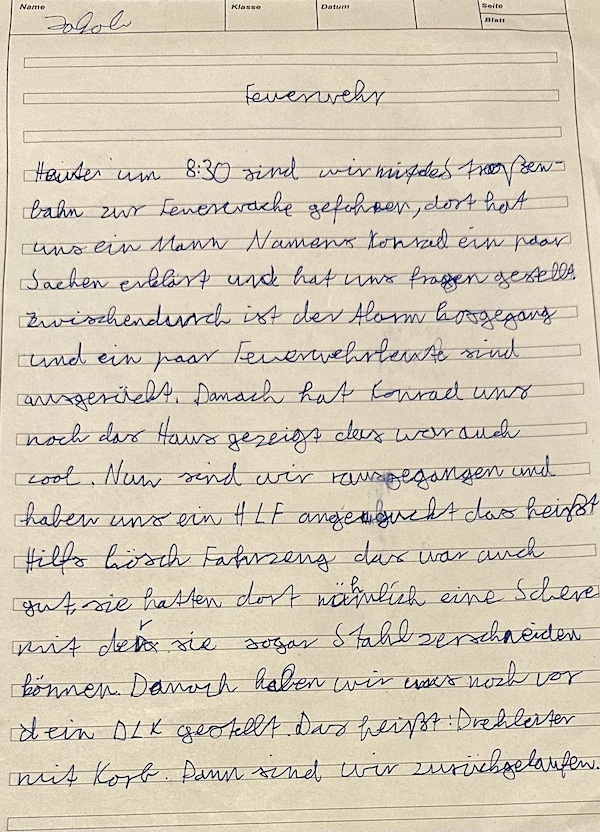 Name
Klasse
Datum
Seite
Blatt
Jakob
Feuerwehr
Heute um 8:30 sind wir mit der Straßen-
bahn zur Feuerwache gefahren, dort hat
uns ein Mann Namens Konrad ein paar
Sachen erklärt und hat uns fragen gestellt
zwischendurch ist der Alarm losgegang
und ein paar Feuerwehrleute sind
ausgerückt. Danach hat Konrad uns
noch das Haus gezeigt das war auch
cool. Nun sind wir rausgegangen und
haben uns ein HLF angeguckt das heißt
Hilfs lösch Fahrzeug das war auch
gut, sie hatten dort nähmlich eine Schere
mit der sie sogar Stahl zerschneiden
können. Danach haben wir uns noch vor
d ein DLK gestellt. Das heißt: Drehleiter
mit Korb. Dann sind wir zurückgelaufen.